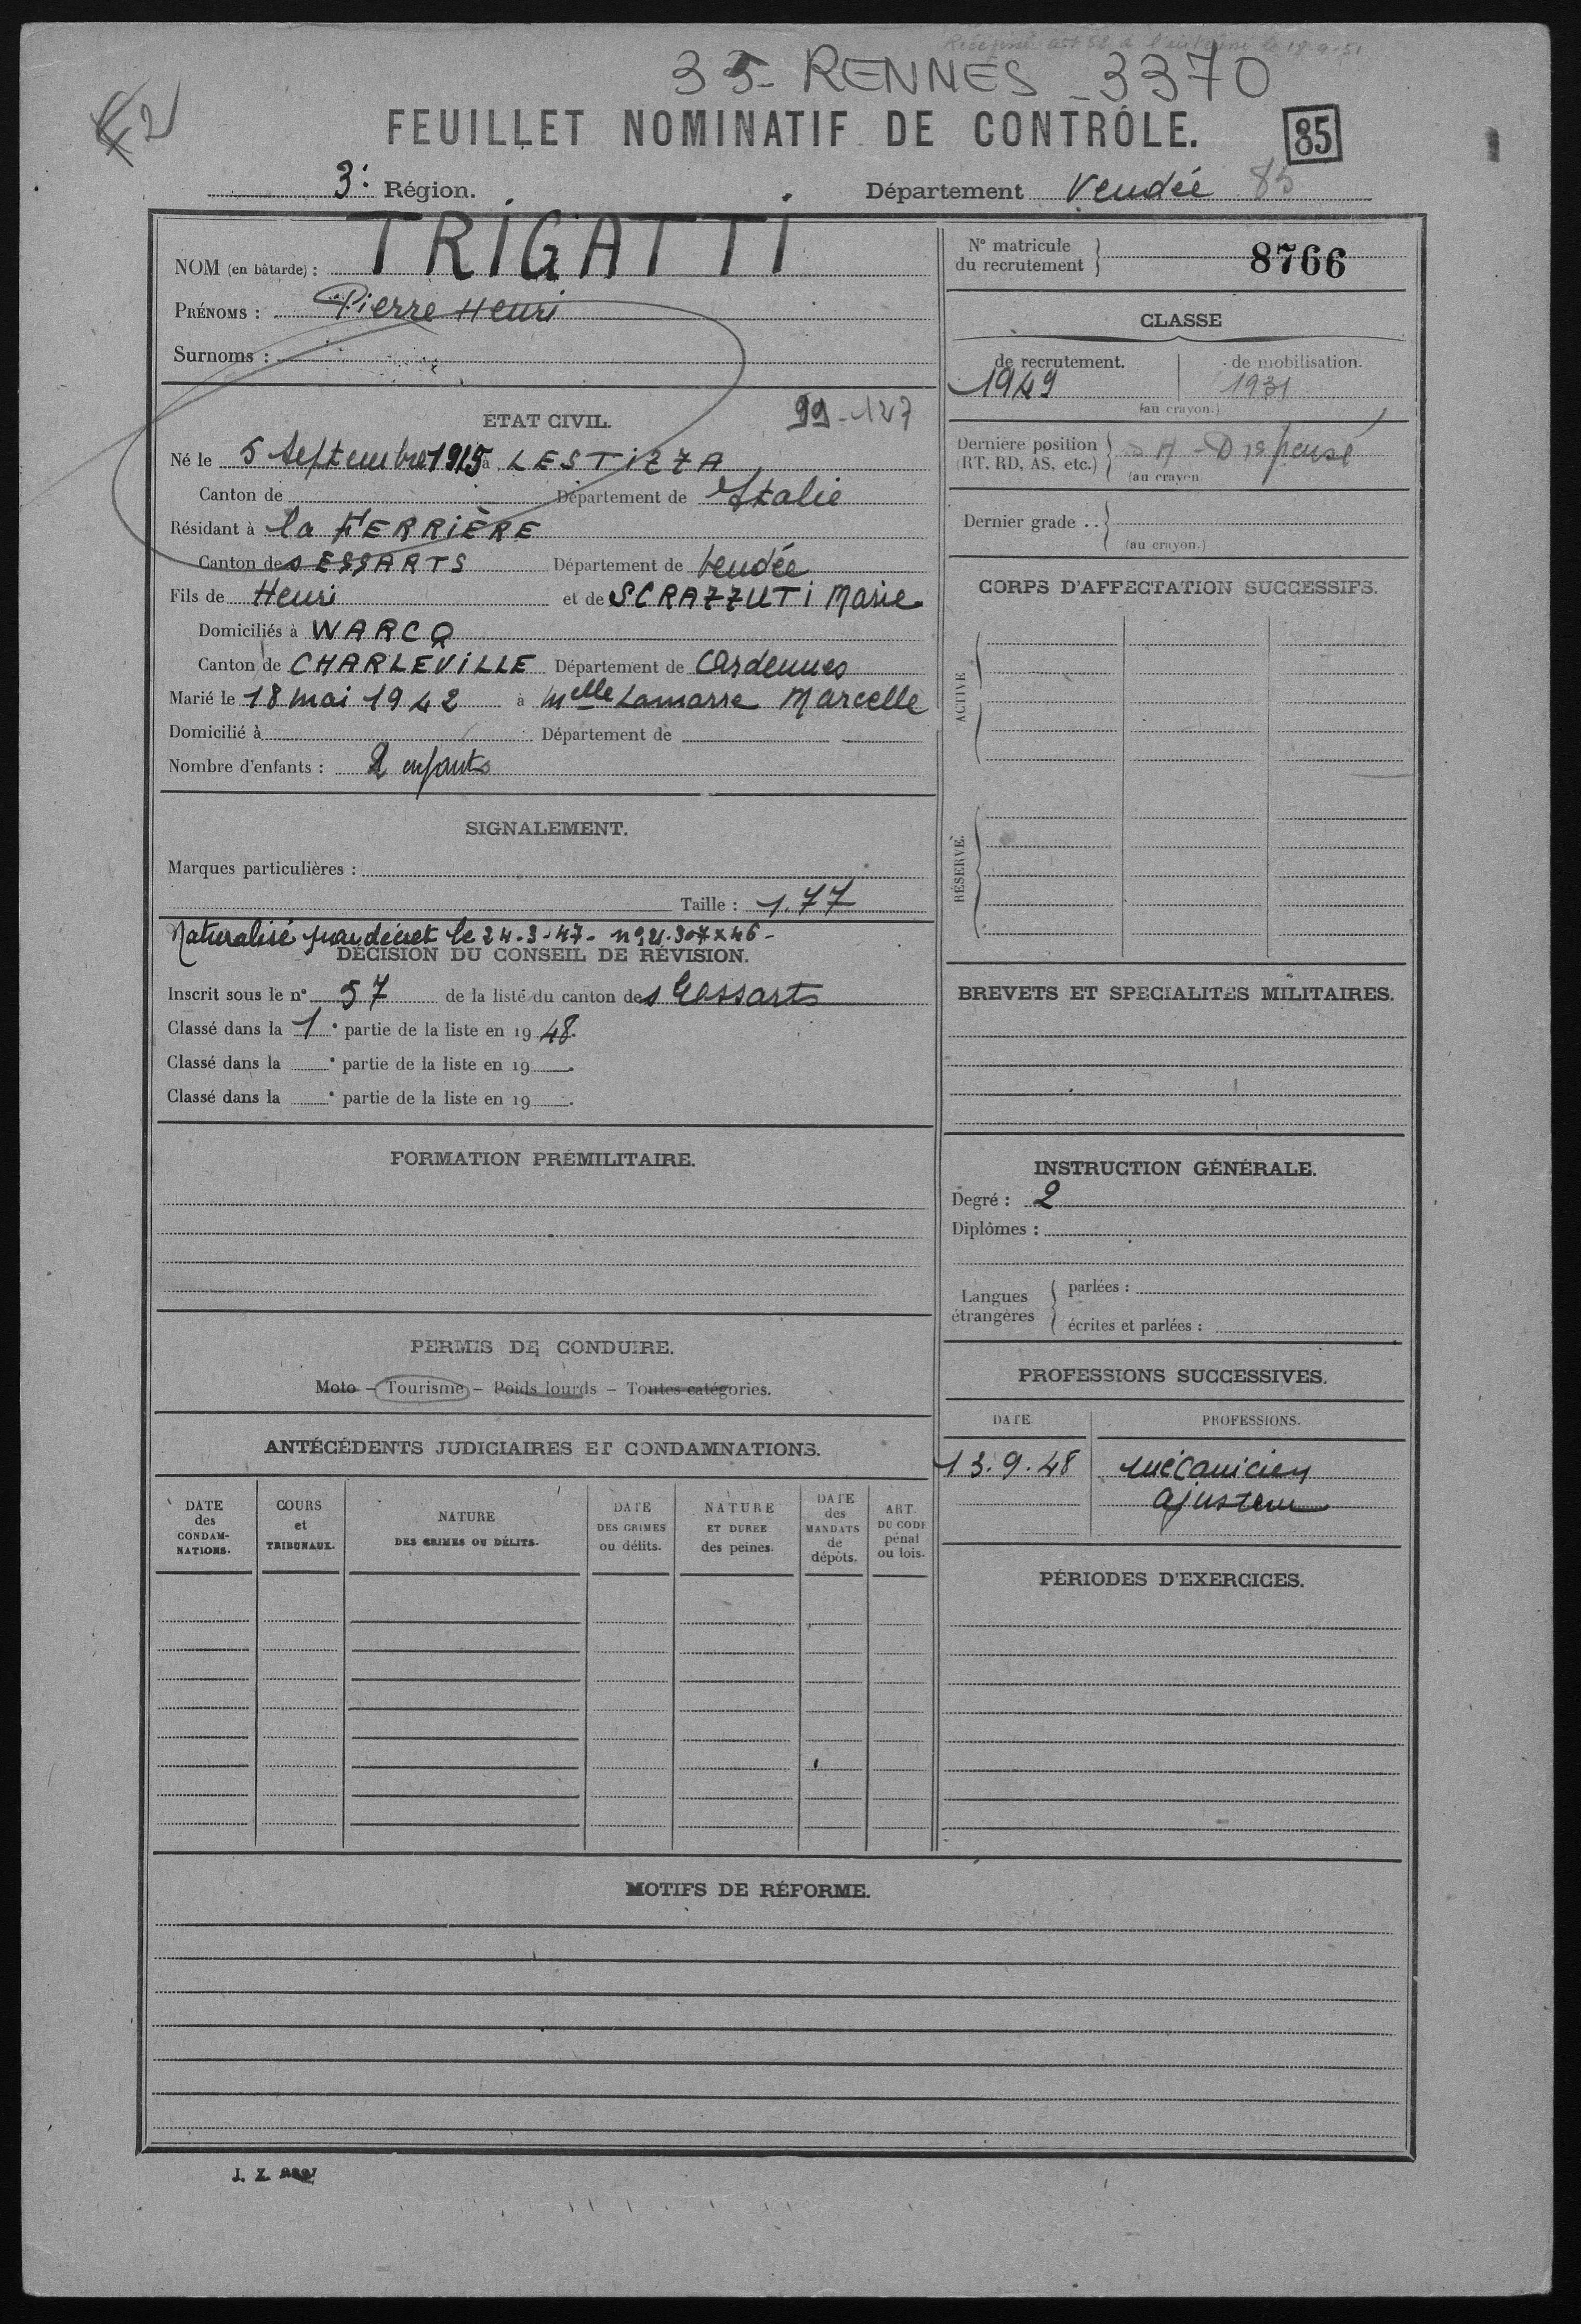 Récépissé art 52 à l'intéressé le 18-9-51
35 - RENNES - 3370
F2
FEUILLET NOMINATIF DE CONTRÔLE.
85
3e Région.
Département Vendée 85
NOM (en bâtarde) : TRIGATTI
PRÉNOMS : Pierre Henri
Surnoms :
ÉTAT CIVIL.
99-127
Né le 5 Septembre 1915 à LESTIZZA
Canton de Département de Italie
Résidant à la FERRIÈRE
Canton des ESSARTS Département de Vendée
Fils de Henri et de SCRAZZUTI Marie
Domiciliés à WARCQ
Canton de CHARLEVILLE Département de Ardennes
Marié le 18 mai 1942 à Melle Lamarre Marcelle
Domicilié à Département de
Nombre d'enfants : 2 enfants
SIGNALEMENT.
Marques particulières :
Taille : 1.77
Naturalisé par décret le 24-3-47-
DÉCISION DU CONSEIL DE RÉVISION.
Inscrit sous le n° 57 de la liste du canton des Essarts
Classé dans la 1e partie de la liste en 1948.
Classé dans la e partie de la liste en 19 .
Classé dans la e partie de la liste en 19 .
FORMATION PRÉMILITAIRE.
PERMIS DE CONDUIRE.
Moto – Tourisme – Poids lourds – Toutes catégories.
ANTÉCÉDENTS JUDICIAIRES ET CONDAMNATIONS.
DATE des CONDAM-NATIONS.
COURS et TRIBUNAUX.
NATURE DES CRIMES OU DÉLITS.
DATE DES CRIMES ou délits.
NATURE ET DURÉE des peines.
DATE des MANDATS de dépôts.
ART. DU CODE pénal ou lois.
N° matricule du recrutement 8766
CLASSE
de recrutement. de mobilisation.
1949 1931
(au crayon.)
Dernière position (RT. RD, AS, etc.) Dispensé
(au crayon)
Dernier grade ..
(au crayon.)
CORPS D'AFFECTATION SUCCESSIFS.
ACTIVE
RÉSERVE.
BREVETS ET SPÉCIALITÉS MILITAIRES.
INSTRUCTION GÉNÉRALE.
Degré : 2
Diplômes :
Langues étrangères
parlées :
écrites et parlées :
PROFESSIONS SUCCESSIVES.
DATE PROFESSIONS.
13.9.48 mécanicien
ajusteur
PÉRIODES D'EXERCICES.
MOTIFS DE RÉFORME.
J. Z.